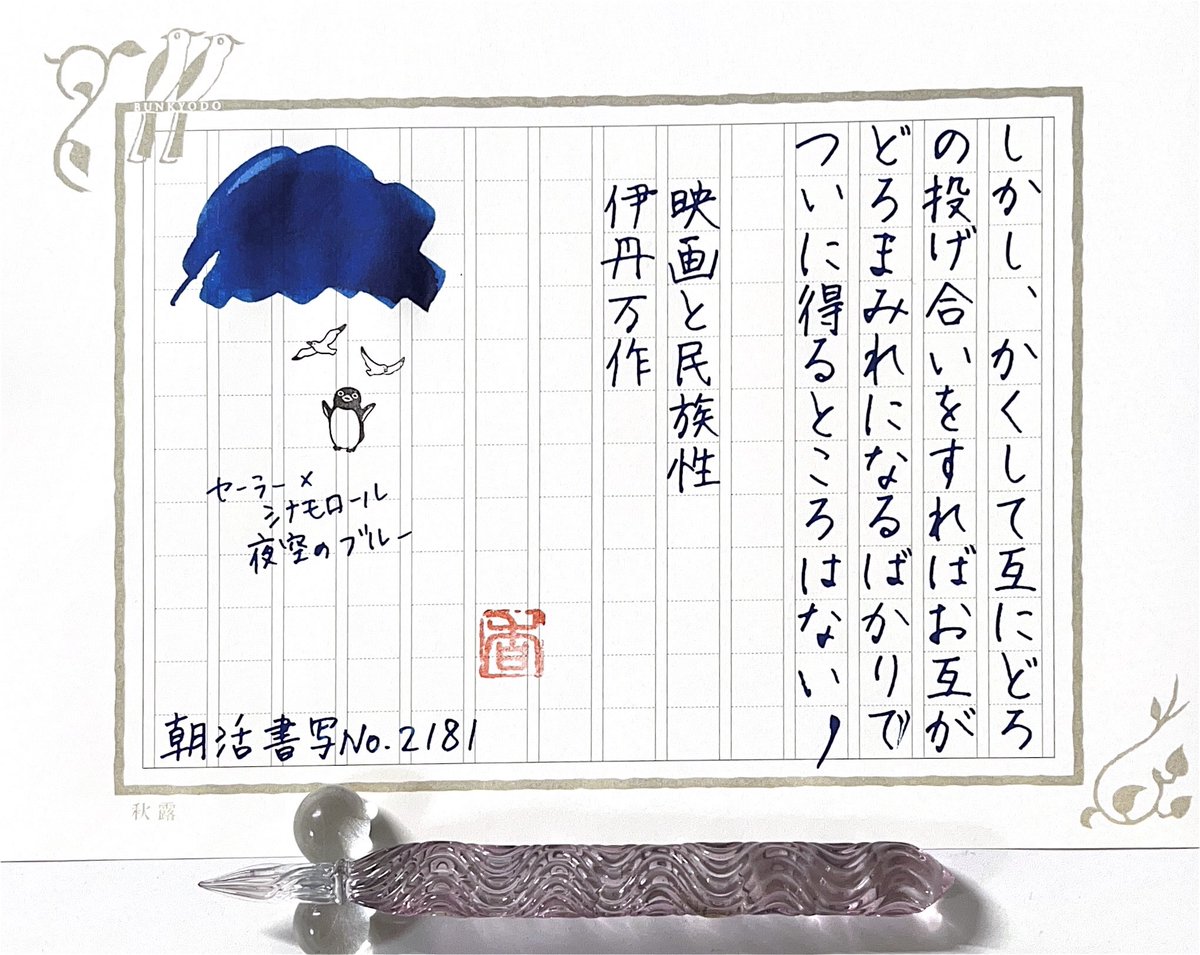 しかし、かくして互にどろ
の投げ合いをすればお互が
どろまみれになるばかりで
ついに得るところはない。
映画と民族性
伊丹万作
セーラー×
シナモロール
夜空のブルー
朝活書写No.2181
BUNKYODO
秋露